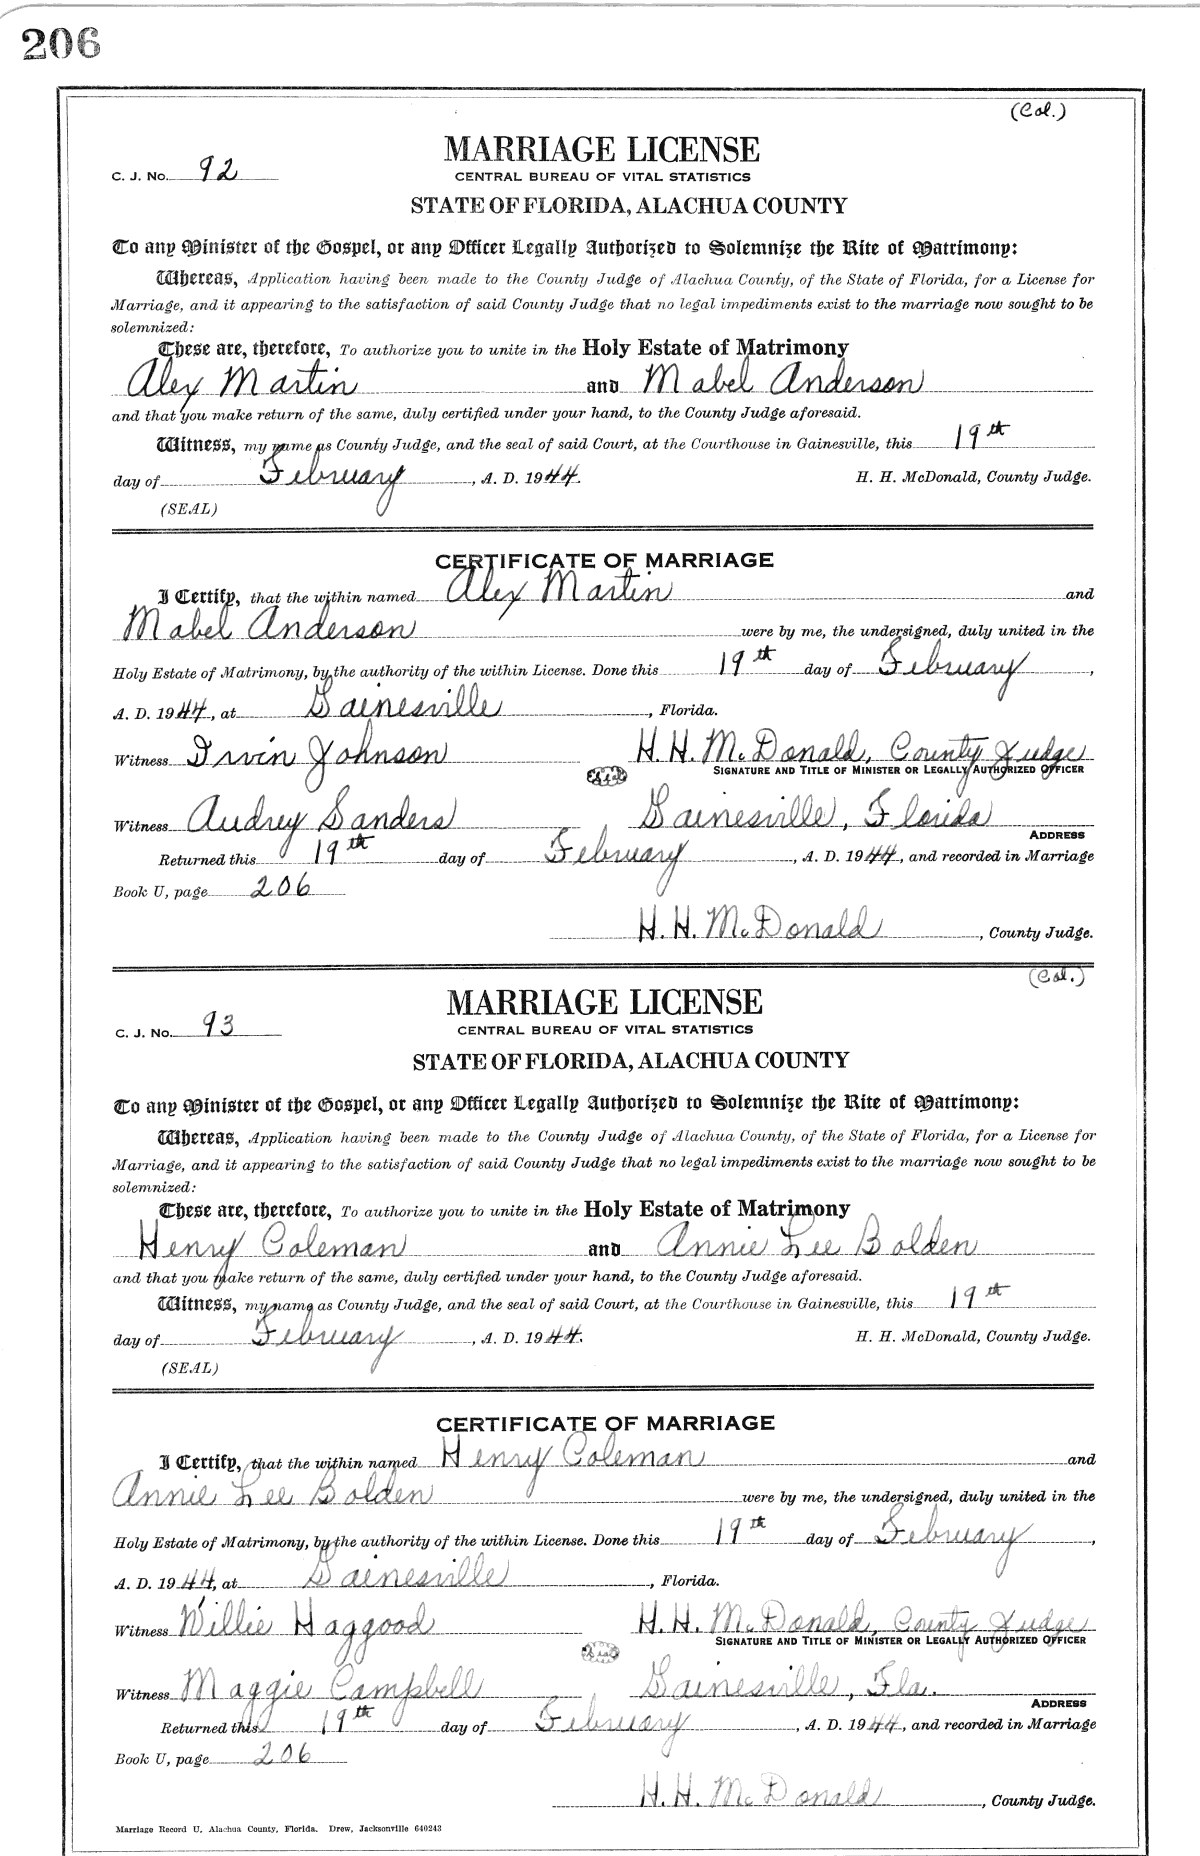 206
(Col.)
MARRIAGE LICENSE
C. J. No. 92
CENTRAL BUREAU OF VITAL STATISTICS
STATE OF FLORIDA, ALACHUA COUNTY
To any Minister of the Gospel, or any Officer Legally Authorized to Solemnize the Rite of Matrimony:
Whereas, Application having been made to the County Judge of Alachua County, of the State of Florida, for a License for
Marriage, and it appearing to the satisfaction of said County Judge that no legal impediments exist to the marriage now sought to be
solemnized:
These are, therefore, To authorize you to unite in the Holy Estate of Matrimony
Alex Martin and Mabel Anderson
and that you make return of the same, duly certified under your hand, to the County Judge aforesaid.
Witness, my name as County Judge, and the seal of said Court, at the Courthouse in Gainesville, this 19th
day of February, A. D. 1944. H. H. McDonald, County Judge.
(SEAL)
CERTIFICATE OF MARRIAGE
I Certify, that the within named Alex Martin and
Mabel Anderson were by me, the undersigned, duly united in the
Holy Estate of Matrimony, by the authority of the within License. Done this 19th day of February,
A. D. 1944, at Gainesville, Florida.
Witness Irvin Johnson H. H. McDonald, County Judge
Seal SIGNATURE AND TITLE OF MINISTER OR LEGALLY AUTHORIZED OFFICER
Witness Audrey Sanders Gainesville, Florida
ADDRESS
Returned this 19th day of February, A. D. 1944, and recorded in Marriage
Book U, page 206
H. H. McDonald, County Judge.
(Col.)
MARRIAGE LICENSE
C. J. No. 93
CENTRAL BUREAU OF VITAL STATISTICS
STATE OF FLORIDA, ALACHUA COUNTY
To any Minister of the Gospel, or any Officer Legally Authorized to Solemnize the Rite of Matrimony:
Whereas, Application having been made to the County Judge of Alachua County, of the State of Florida, for a License for
Marriage, and it appearing to the satisfaction of said County Judge that no legal impediments exist to the marriage now sought to be
solemnized:
These are, therefore, To authorize you to unite in the Holy Estate of Matrimony
Henry Coleman and Annie Lee Bolden
and that you make return of the same, duly certified under your hand, to the County Judge aforesaid.
Witness, my name as County Judge, and the seal of said Court, at the Courthouse in Gainesville, this 19th
day of February, A. D. 1944. H. H. McDonald, County Judge.
(SEAL)
CERTIFICATE OF MARRIAGE
I Certify, that the within named Henry Coleman and
Annie Lee Bolden were by me, the undersigned, duly united in the
Holy Estate of Matrimony, by the authority of the within License. Done this 19th day of February,
A. D. 1944, at Gainesville, Florida.
Witness Willie Haggood H. H. McDonald, County Judge
Seal SIGNATURE AND TITLE OF MINISTER OR LEGALLY AUTHORIZED OFFICER
Witness Maggie Campbell Gainesville, Fla.
ADDRESS
Returned this 19th day of February, A. D. 1944, and recorded in Marriage
Book U, page 206
H. H. McDonald, County Judge.
Marriage Record U, Alachua County, Florida. Drew, Jacksonville 640243